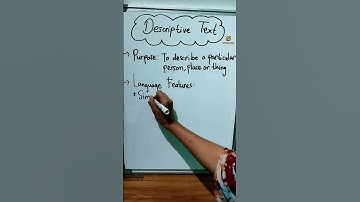 Descriptive Text
→ Purpose: To describe a particular
person, place or thing
→ Language Features:
* Sim